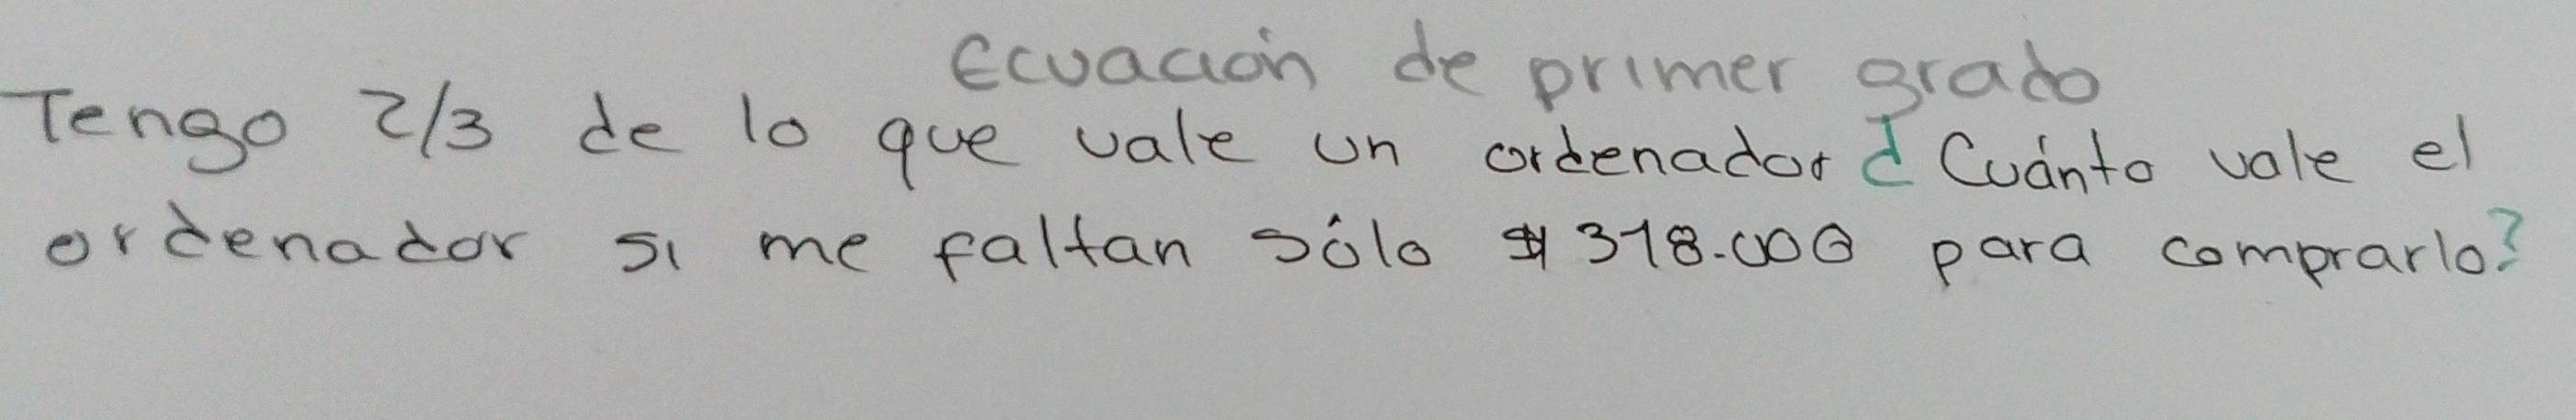 Ecuación de primer grado
Tengo 2/3 de lo que vale un ordenador ¿Cuánto vale el
ordenador si me faltan sólo $ 318.000 para comprarlo?